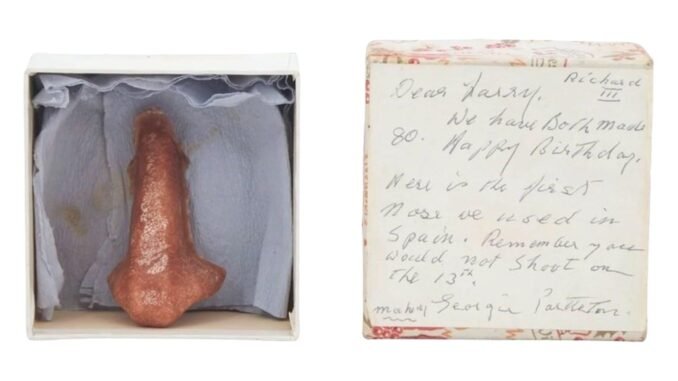 Richard
III
Dear Larry.
We have Both made
80. Happy Birthday.
Here is the first
Nose we used in
Spain. Remember you
would not Shoot on
the 13th.
Georgie Partleton.